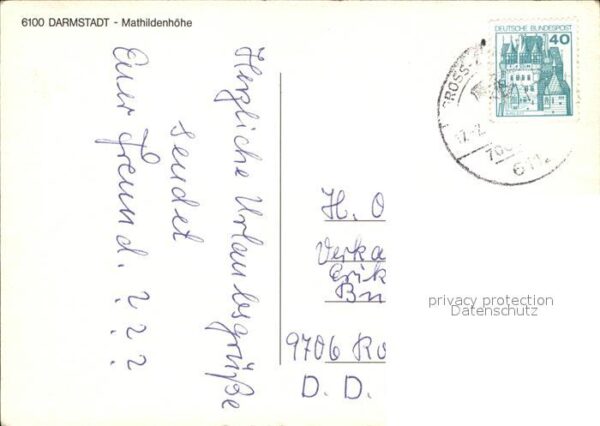 6100 DARMSTADT - Mathildenhöhe
Herzliche Urlaubsgrüße
sendet
Euer Freund. ? ? ?
DEUTSCHE BUNDESPOST
40
GROSS-
H. O
Verka
Erik
Bu
9706 Ro
D. D.
privacy protection
Datenschutz